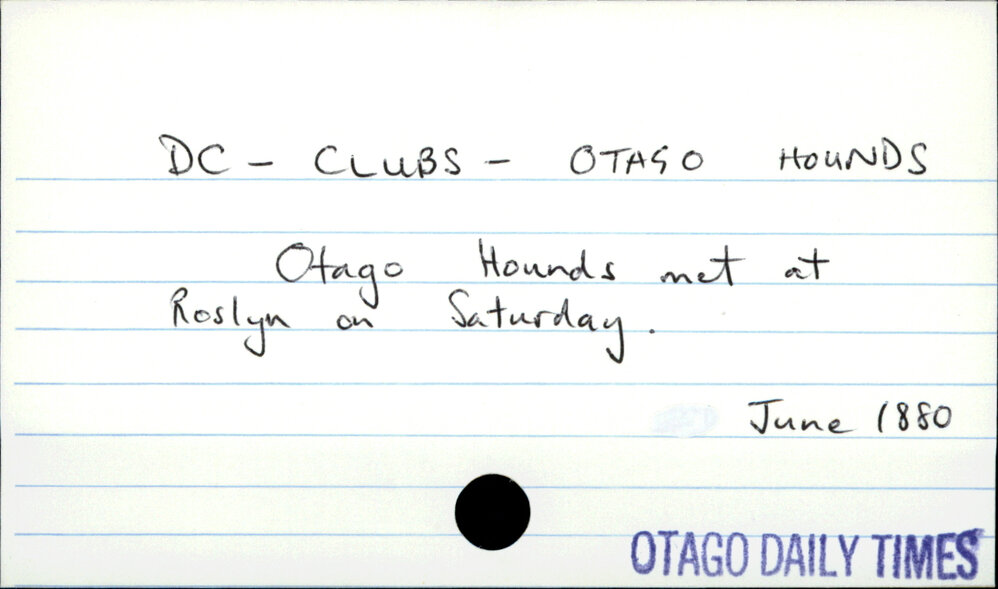 DC - CLUBS - OTAGO HOUNDS
Otago Hounds met at
Roslyn on Saturday.
June 1880
OTAGO DAILY TIMES